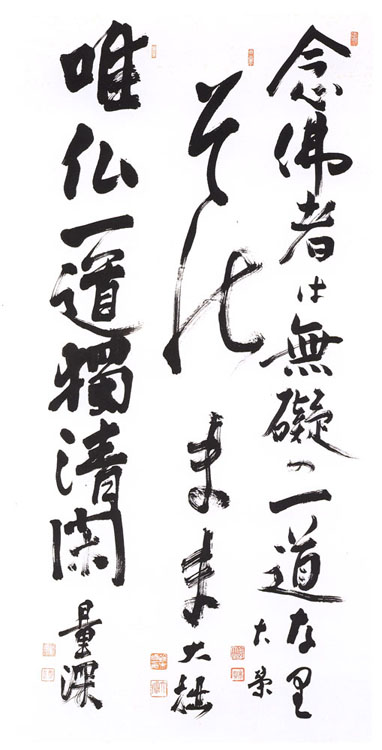 念佛者は無礙の一道なり 大榮
そのまま 大拙
唯仏一道獨清閑 量深